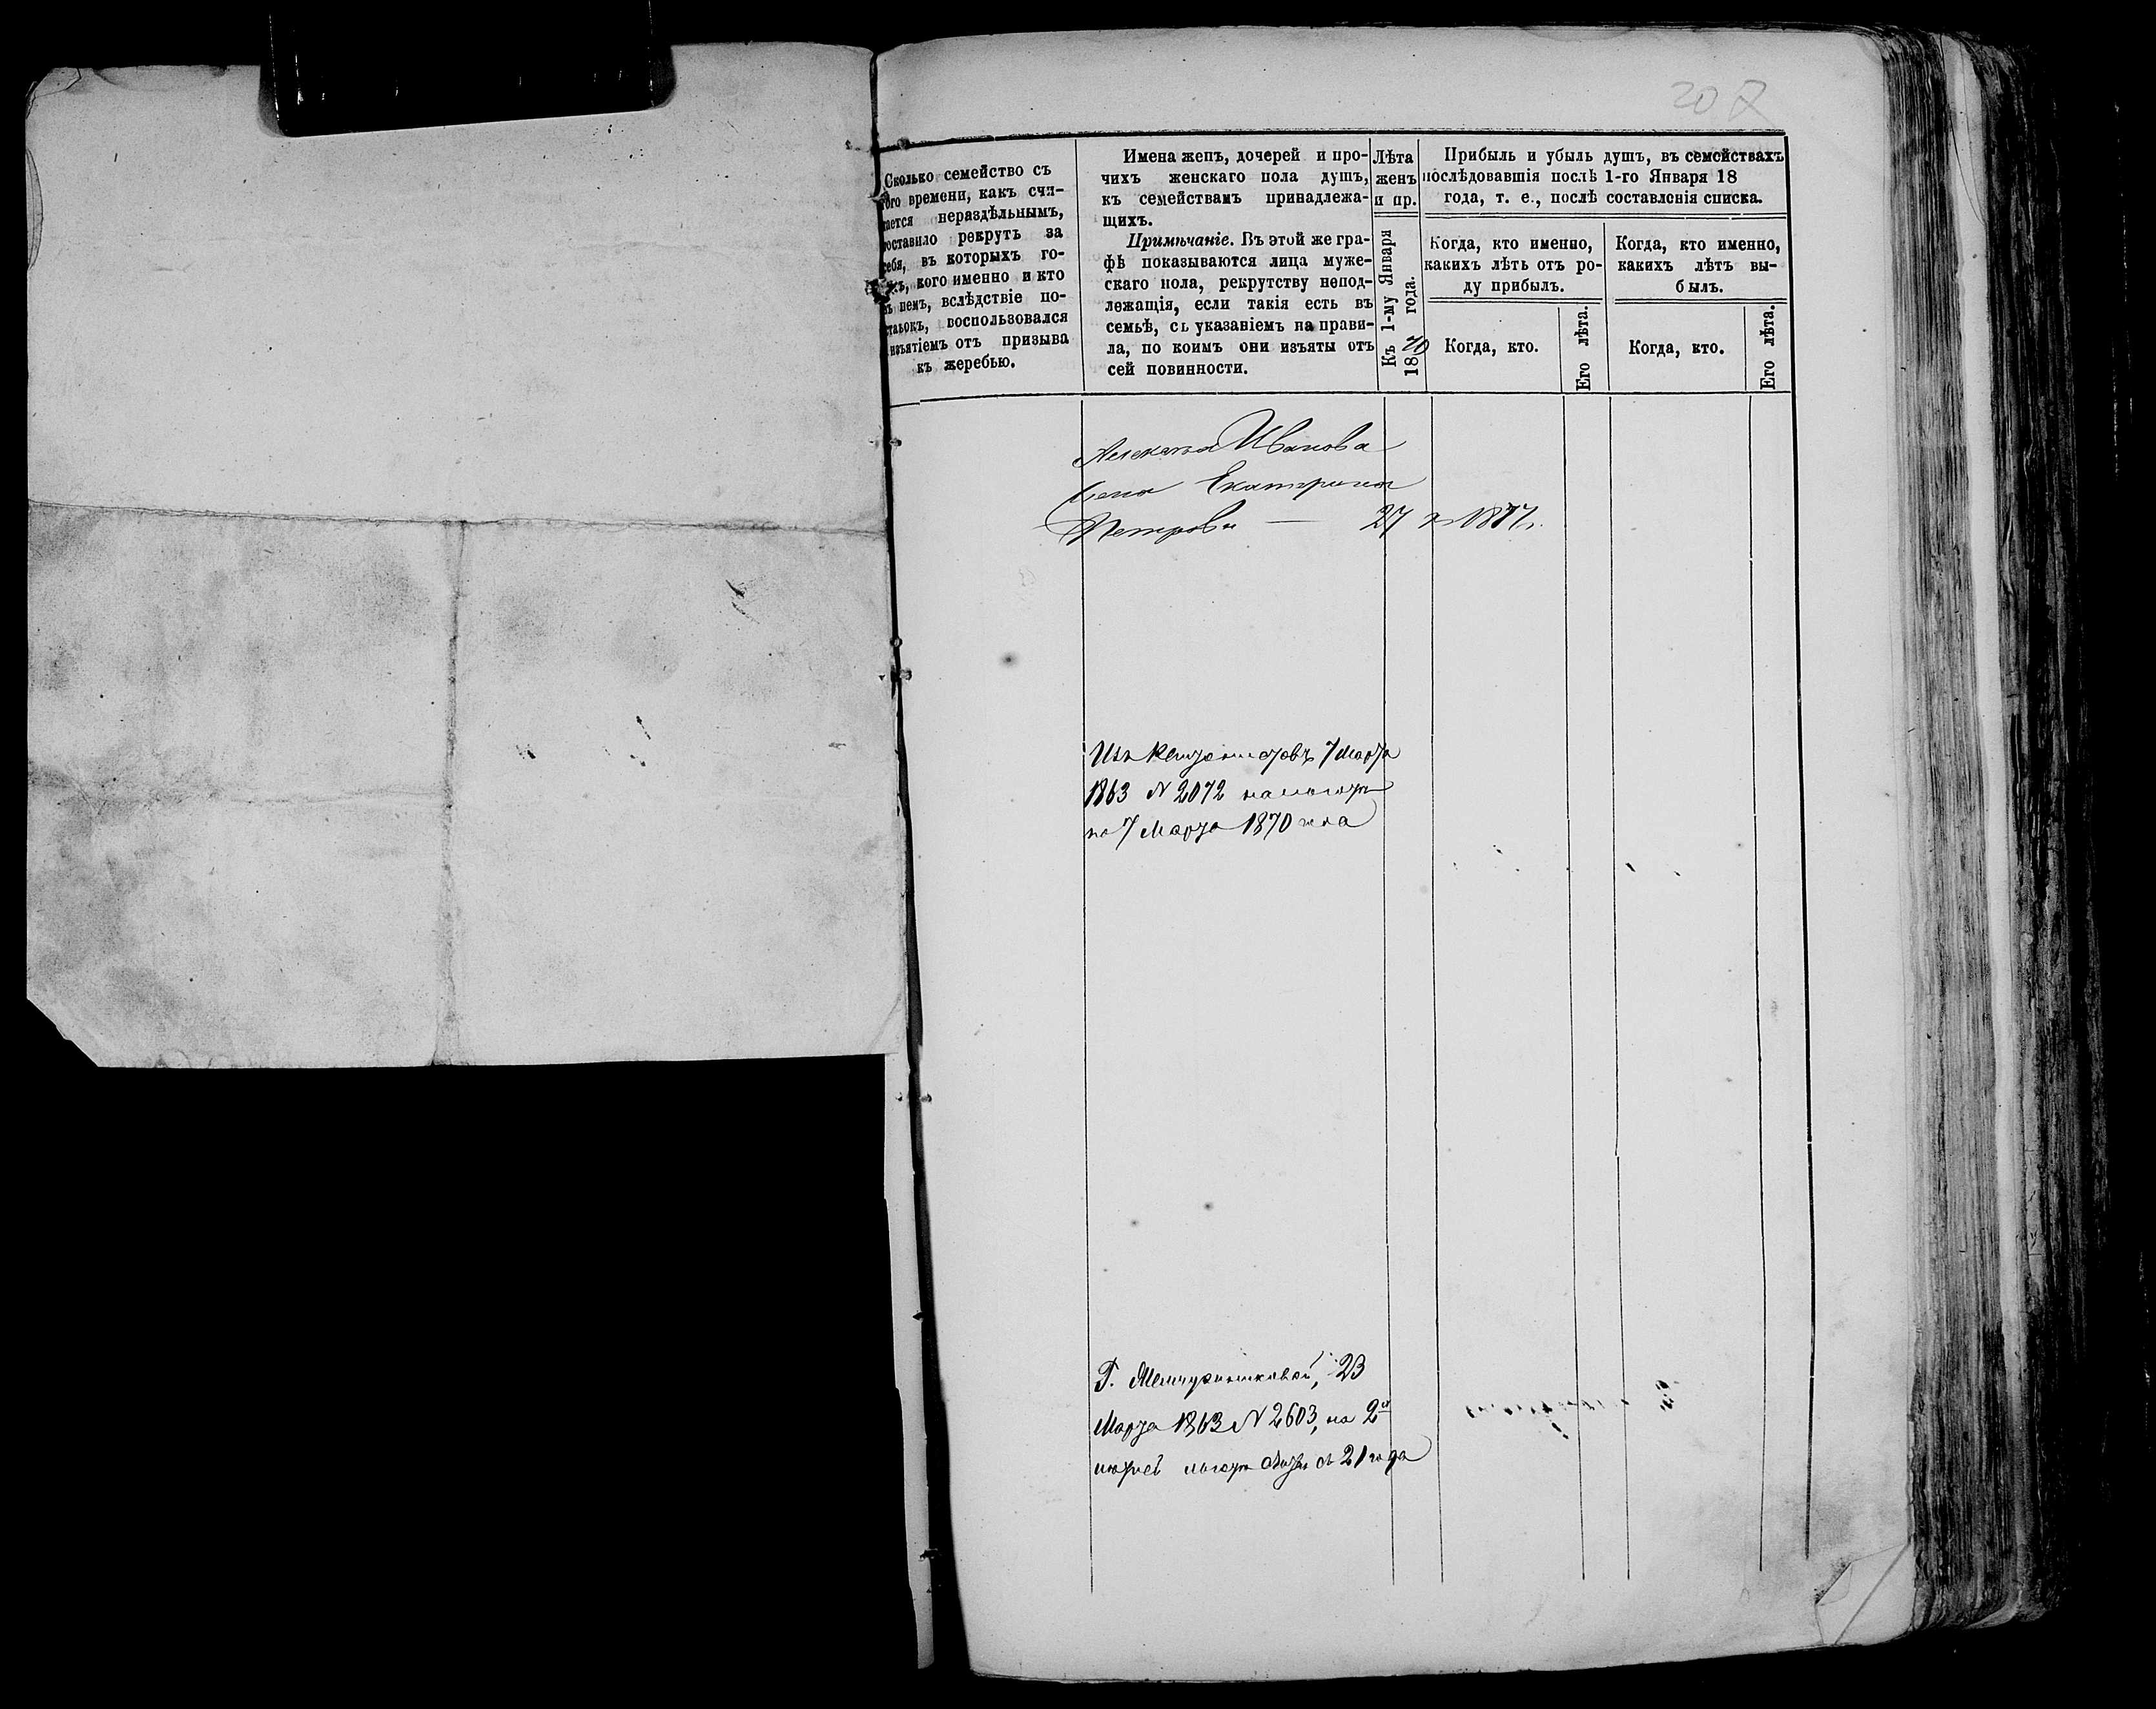 207
Сколько семейство съ
того времени, какъ счи-
тается нераздѣльнымъ,
поставило рекрутъ за
себя, въ которыхъ го-
кого именно и кто
въ немъ, вслѣдствіе по-
воспользовался
изъятіемъ отъ призыва
къ жеребью.
Имена женъ, дочерей и про-
чихъ женскаго пола душъ,
къ семействамъ принадлежа-
щихъ.
Примѣчаніе. Въ этой же гра-
фѣ показываются лица муже-
скаго пола, рекрутству непод-
лежащія, если такія есть въ
семьѣ, съ указаніемъ на прави-
ла, по коимъ они изъяты отъ
сей повинности.
Лѣта
женъ
и пр.
Къ 1-му Января
1870 года.
Прибыль и убыль душъ, въ семействахъ
послѣдовавшія послѣ 1-го Января 18
года, т. е., послѣ составленія списка.
Когда, кто именно,
какихъ лѣтъ отъ ро-
ду прибылъ.
Когда, кто.
Его лѣта.
Когда, кто именно,
какихъ лѣтъ вы-
былъ.
Когда, кто.
Его лѣта.
Иванова
Екатерина
Петрова — 27 1877 г.
7 Марта
1863 № 2072
по 7 Марта 1870 года
Г. 23
Марта 1863 № 2603, на 2й
21 года